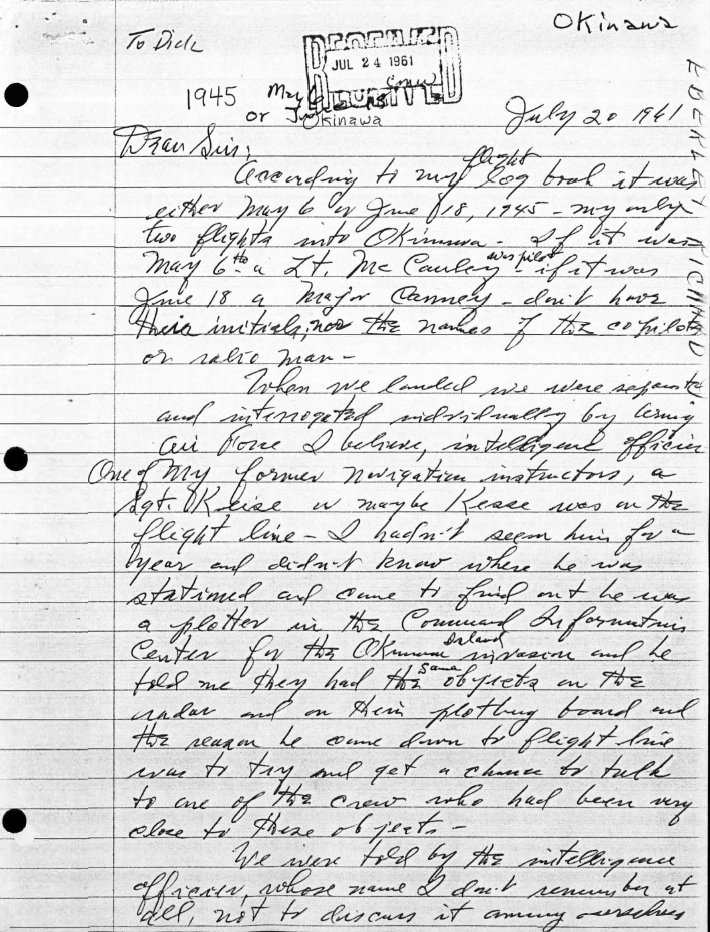 Okinawa
To Dick
RECEIVED
JUL 24 1961
1945 May 6 crew
or June 18
Okinawa
EBERLEY RICHARD
July 20 1961
Dear Sir;
According to my flight log book it was
either May 6 or June 18, 1945 - my only
two flights into Okinawa - If it was
May 6th a Lt. McCauley was pilot - if it was
June 18 a Major Canney - don't have
their initials, nor the names of the copilots
or radio man -
When we landed we were separated
and interrogated individually by Army
Air Force I believe, intelligence officers
One of my former navigation instructors, a
Sgt. Kreise or maybe Kease was on the
flight line - I hadn't seem him for a
year and didn't know where he was
stationed and came to find out he was
a plotter in the Command Information
Center for the Okinawa Island invasion and he
told me they had the same objects on the
radar and on their plotting board and
the reason he came down to flight line
was to try and get a chance to talk
to one of the crew who had been very
close to these objects -
We were told by the intelligence
officers, whose name I don't remember at
all, not to discuss it among ourselves